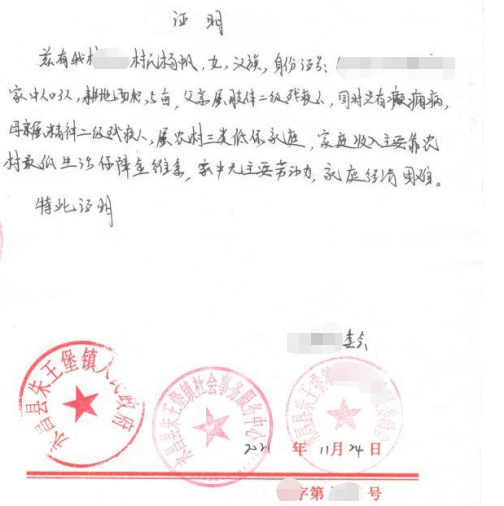 证明
兹有我村 村民杨帆,女,汉族,身份证号:
家中人口3人,耕地面积5亩,父亲属肢体二级残疾人,同时患有癫痫病,
母亲属精神二级残疾人,属农村三类低保家庭,家庭收入主要靠农
村最低生活保障金维系,家中无主要劳动力,家庭经济困难。
特此证明
委会
永昌县朱王堡镇人民政府
永昌县朱王堡镇社会事务服务中心
永昌县朱王堡镇
2021年11月24日
字第 号